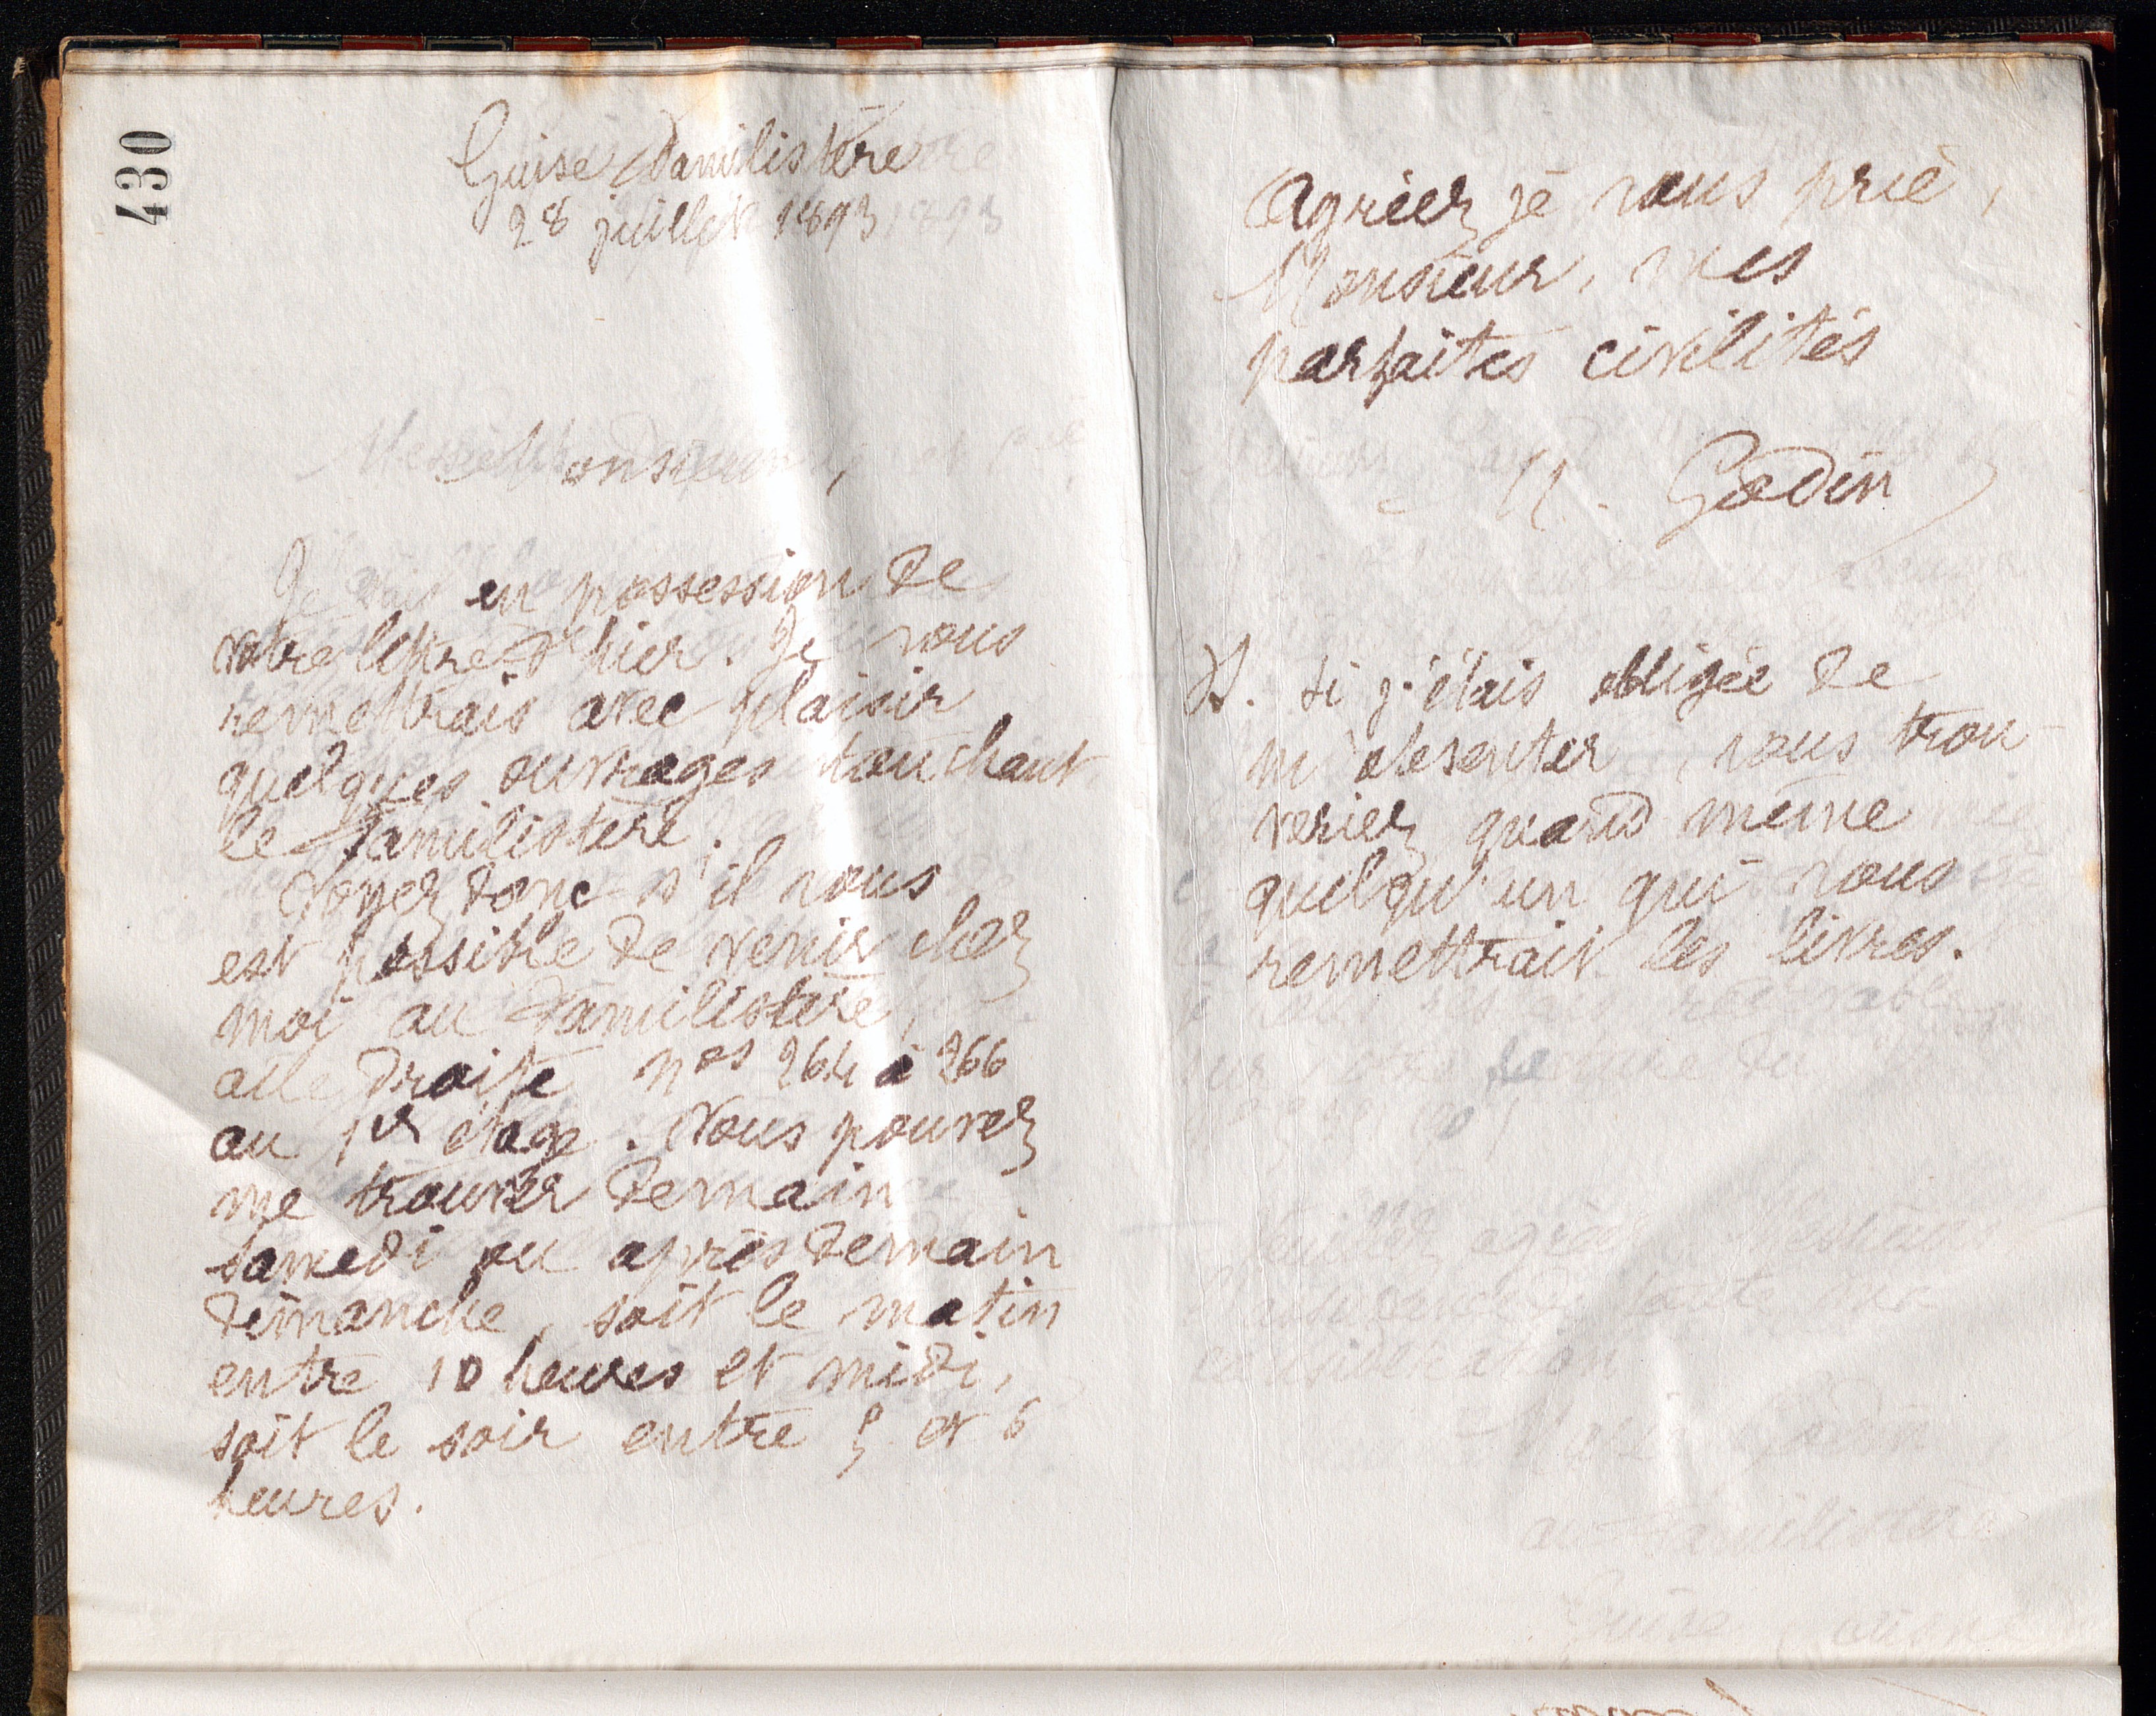 430
Guise Familistère
28 juillet 1893
Monsieur,
Je suis en possession de
votre lettre d'hier. Je vous
remettrais avec plaisir
quelques ouvrages touchant
le Familistère.
Voyez donc s'il vous
est possible de venir chez
moi au Familistère,
aile droite nos 264 à 266
au 1er étage. Vous pouvez
me trouver demain
samedi ou après demain
dimanche, soit le matin
entre 10 heures et midi,
soit le soir entre 5 et 6
heures.
Agréez je vous prie,
Monsieur, mes
parfaites civilités
M. Godin
PS. Si j'étais obligée de
m'absenter, vous trou-
veriez quand même
quelqu'un qui vous
remettrait les livres.